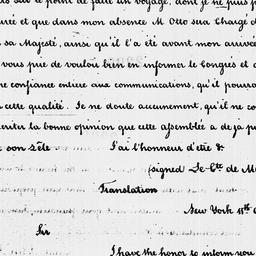 sur le point de faire un voyage, dont je ne puis p
urée et que dans mon absence M Otto sera Chargé d
sa Majesté, ainsi qu'il l'a été avant mon arrivée
vous prie de vouloir bien en informer le Congrès et d
ne confiance entière aux communications, qu'il pourra
cette qualité. Je ne doute aucunement, qu'il ne co
eriter la bonne opinion que cette assemblée a de ja p
son zêle J'ai l'honneur d'être &
(signed Le Cte de M
Translation
New York 11th
Sir
I have the honor to inform you